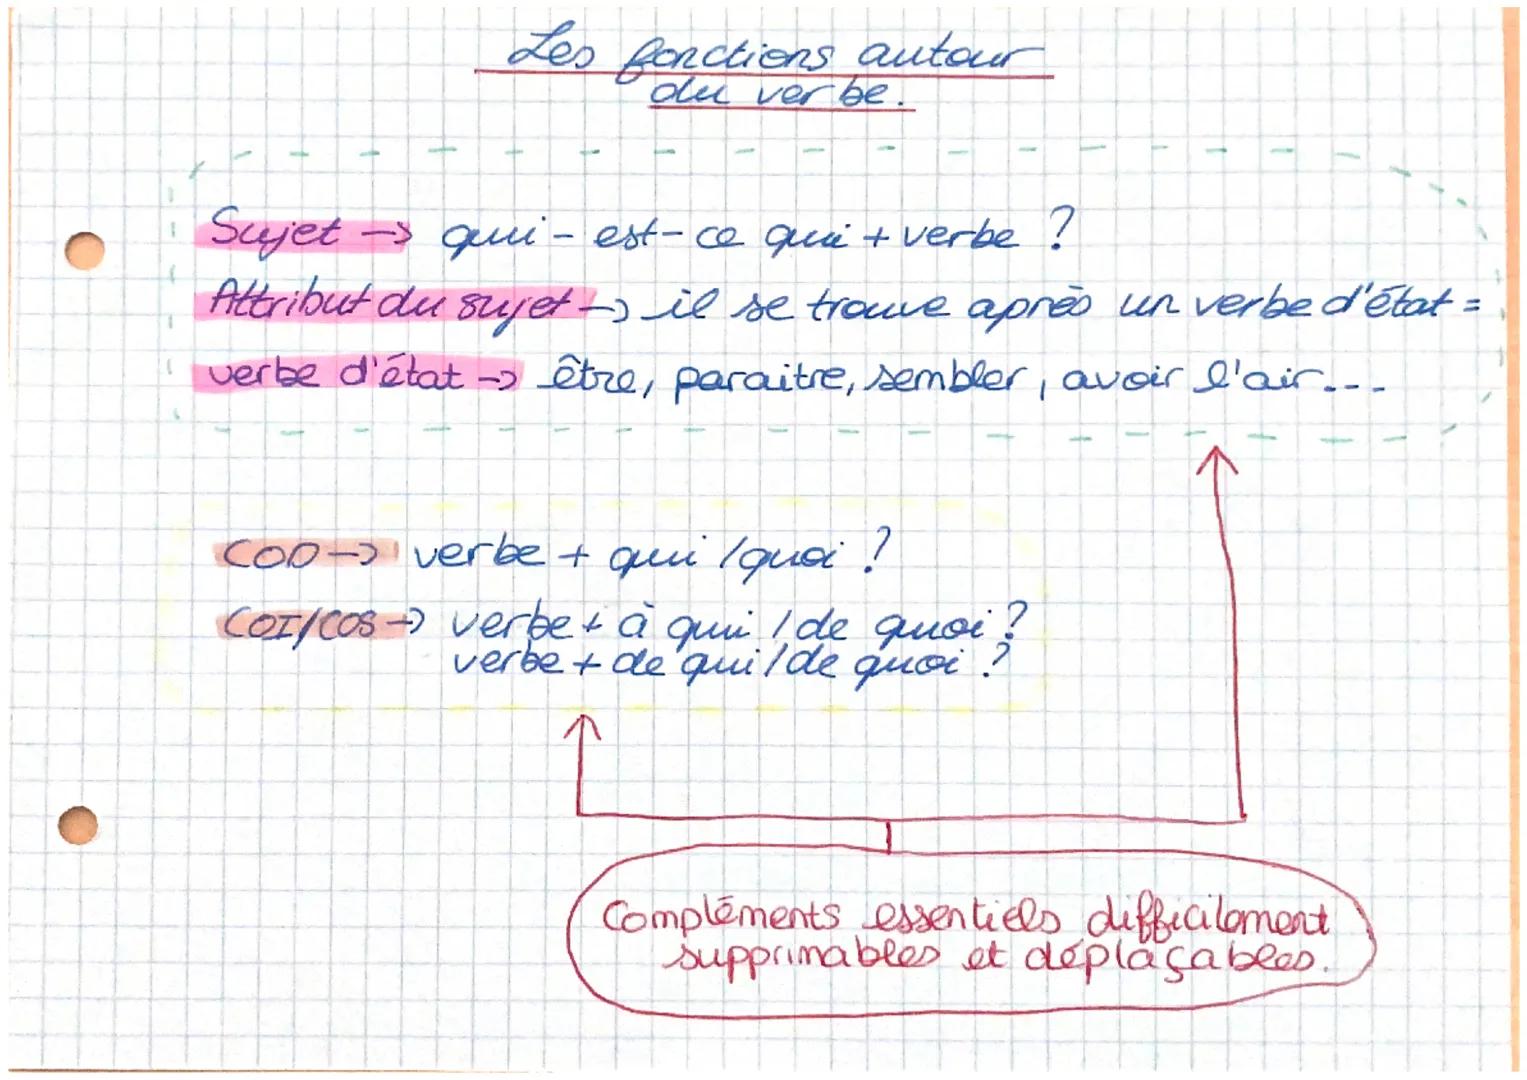 Les fonctions autour
du verbe.
Sujet → qui-est-ce qui + verbe ?
Attribut du sujet → il se trouve après un verbe d'état =
verbe d'état → être, paraitre, sembler, avoir l'air...
COD → verbe + qui / quoi ?
COI/COS → verbe + à qui / de quoi ?
verbe + de qui / de quoi ?
Compléments essentiels difficilement
supprimables et déplaçables.